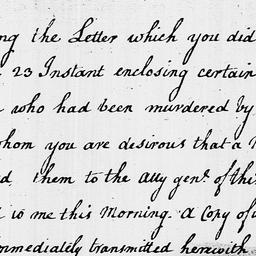 ng the Letter which you did
23 Instant enclosing certain
who had been murdered by
whom you are desirous that a
them to the atty genl. of this
to me this Morning. A Copy of
immediately transmitted herewith